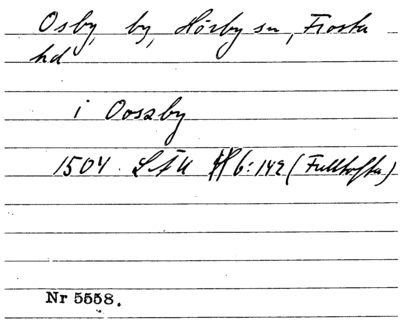 Osby, by, Hörby sn, Frosta
hd
i Ooszby
1504 LÄU H 6:142 (Fulltofta)
Nr 5558.